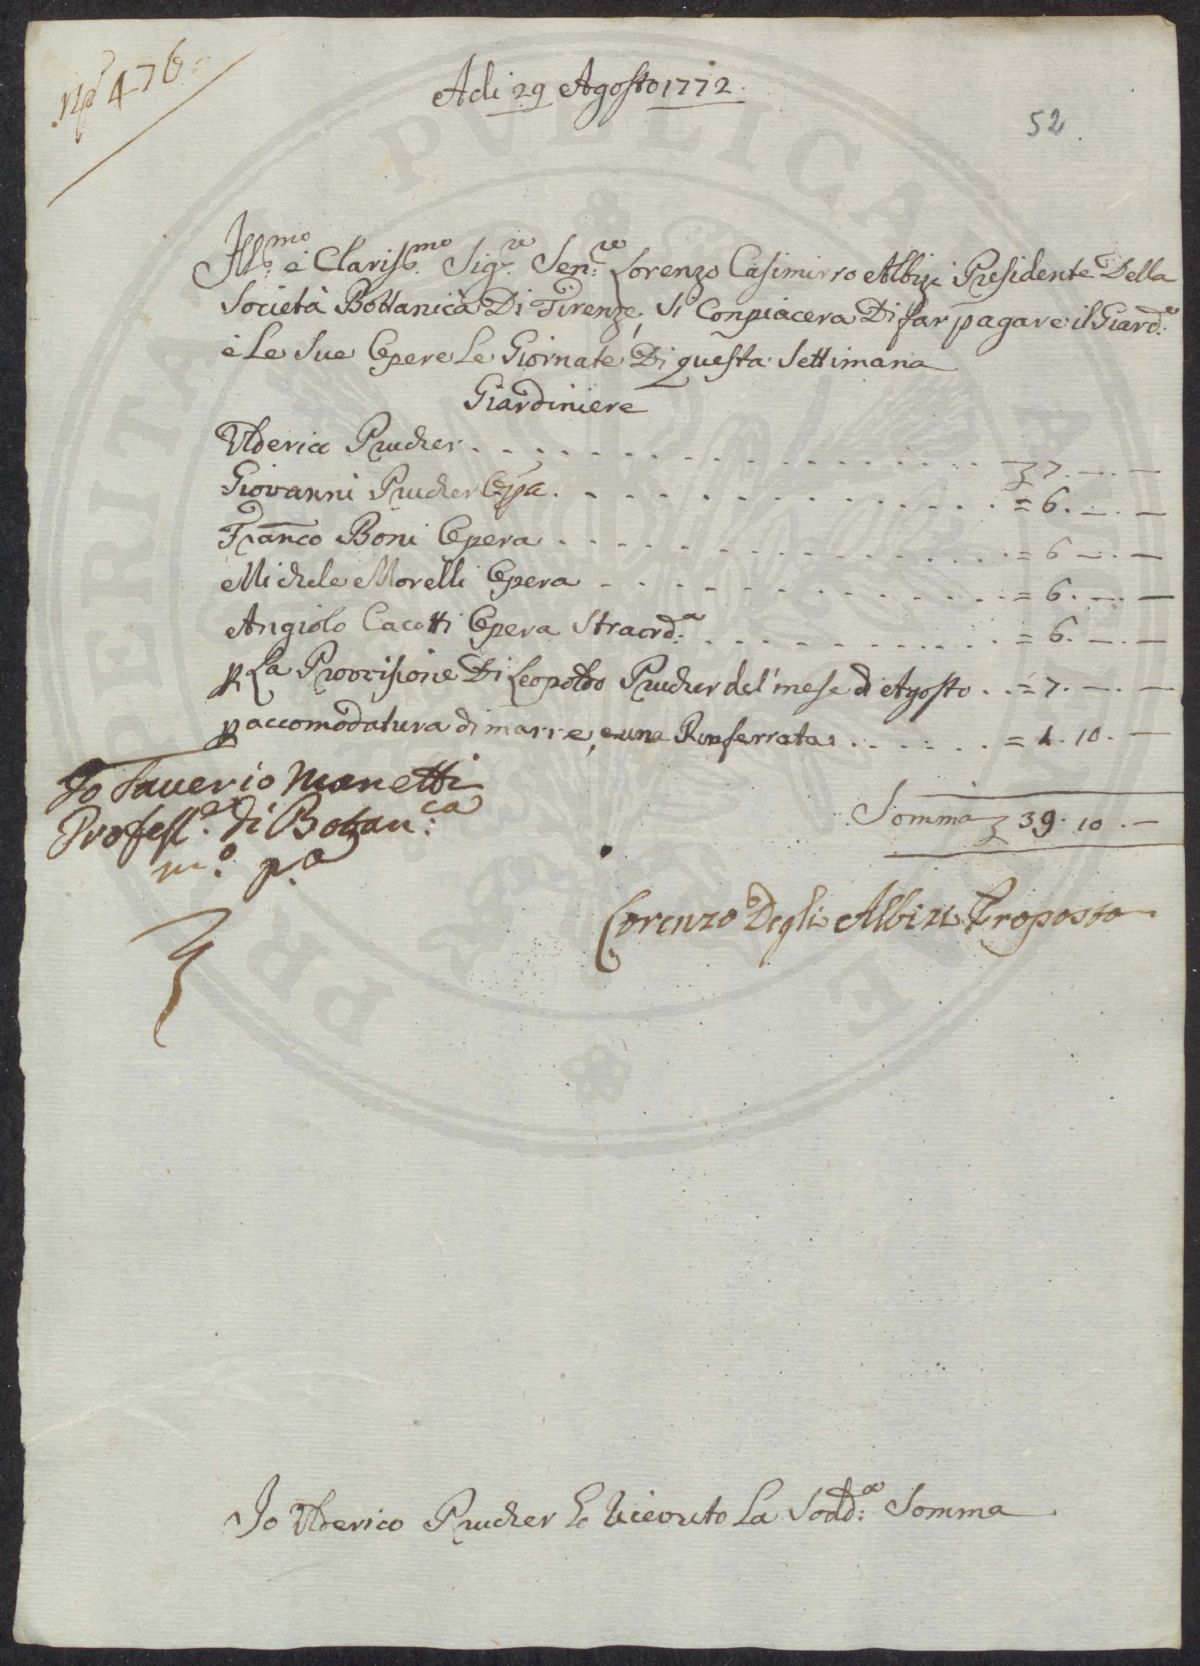 np 476
Adi 29 Agosto 1772.
52.
Ill.mo e Clariss.mo Sig.re Sen.re Lorenzo Casimirro Albizi Presidente Della
Società Bottanica Di Firenze, Si Conpiacera Di far pagare il Giard.e
e Le Sue Opere Le Giornate Di questa Settimana
Giardiniere
Ulderico Prucher . . . . . . . . . . . . . . . . . . £ 7. — . —
Giovanni Prucher Opa . . . . . . . . . . . . . . . = 6. — . —
Franco Boni Opera . . . . . . . . . . . . . . . . = 6 — . —
Michele Morelli Opera . . . . . . . . . . . . . . = 6. — . —
Angiolo Cacotti Opera Straord:a . . . . . . . . . . . = 6. — . —
p La Provisione Di Leopoldo Prucher del' mese di Agosto . . = 7. — . —
p accomodatura di marre, e una Rinferrata: . . . . . . . = 1. 10. —
Io Saverio Manetti
Profess.re di Botan:ca
m.o p.a
Somma £ 39. 10. —
Lorenzo Degli Albizi Proposto
Io Ulderico Prucher ho riceuto La Sodd:a Somma
PERITATI PVBLICAE